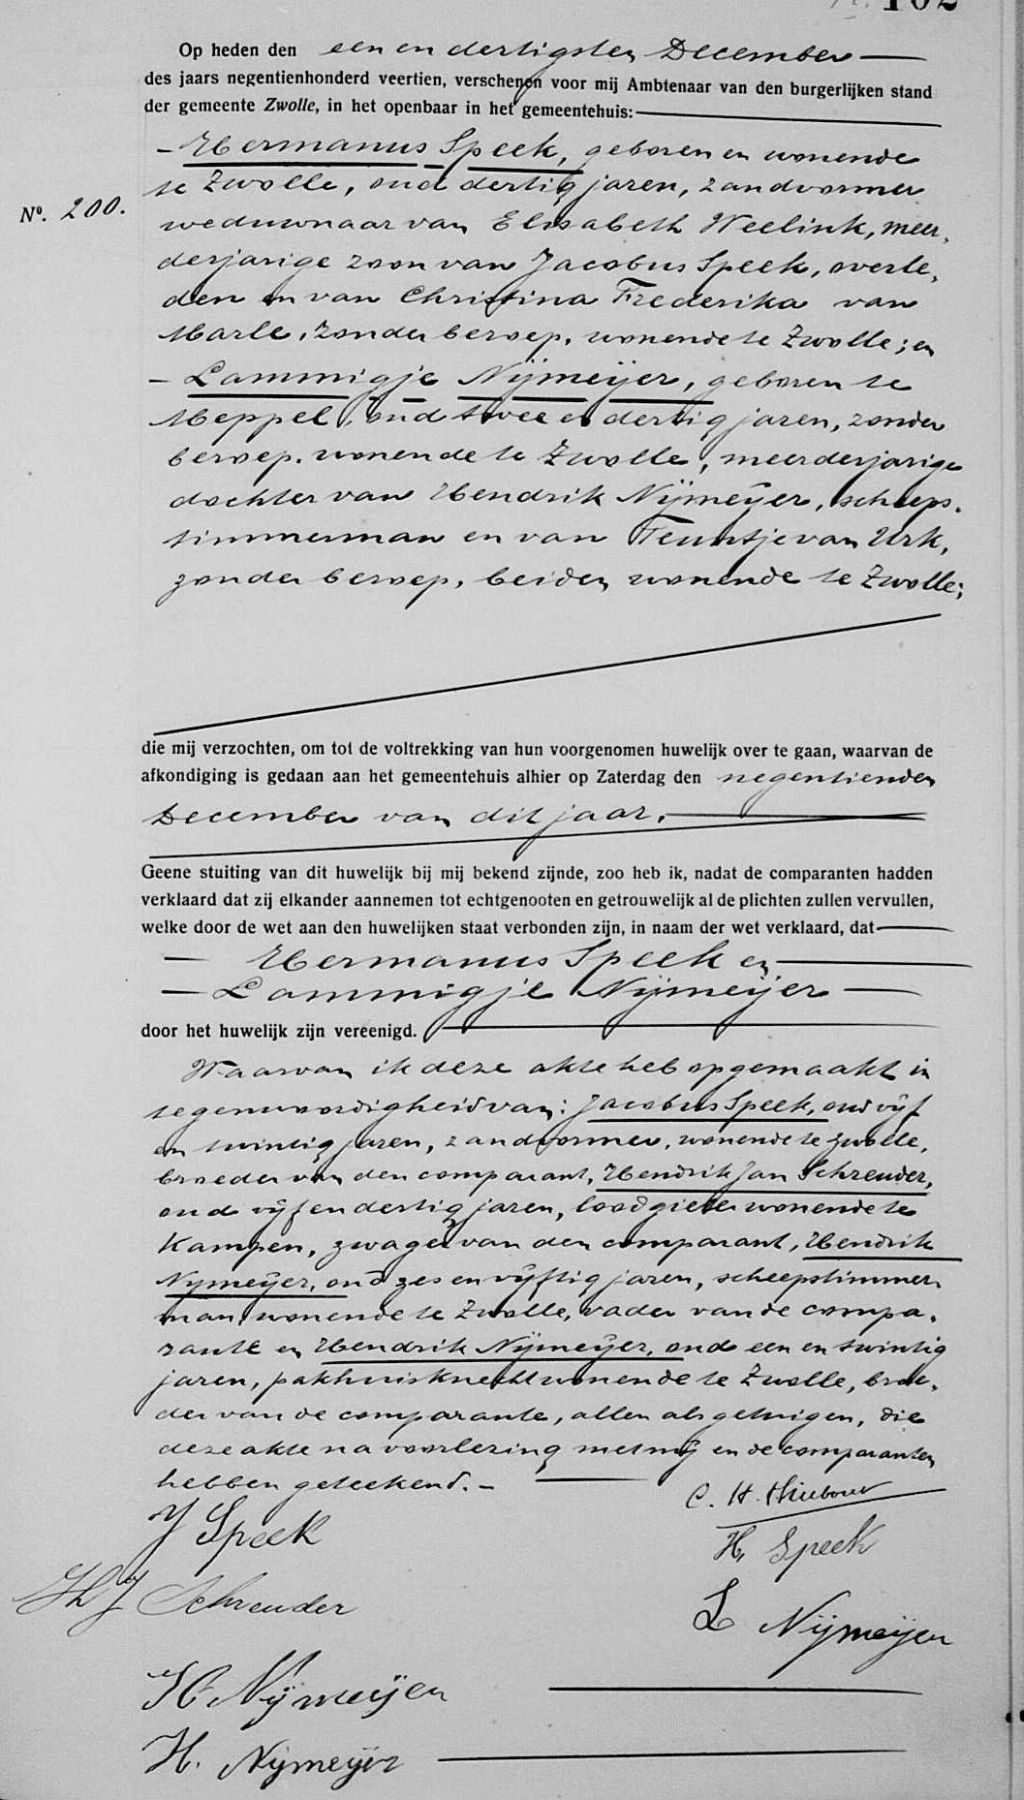 102
Op heden den een en dertigsten December
des jaars negentienhonderd veertien, verschenen voor mij Ambtenaar van den burgerlijken stand
der gemeente Zwolle, in het openbaar in het gemeentehuis:
Hermanus Speek, geboren en wonende
No. 200.
te Zwolle, oud dertig jaren, zandvormer
weduwnaar van Elisabeth Weelink, meer-
derjarige zoon van Jacobus Speek, overle-
den en van Christina Frederika van
Marle, zonder beroep, wonende te Zwolle; en
Lammigje Nijmeijer, geboren te
Meppel, oud twee en dertig jaren, zonder
beroep, wonende te Zwolle, meerderjarige
dochter van Hendrik Nijmeijer, scheeps-
timmerman en van Teuntje van Urk,
zonder beroep, beiden wonende te Zwolle;
die mij verzochten, om tot de voltrekking van hun voorgenomen huwelijk over te gaan, waarvan de
afkondiging is gedaan aan het gemeentehuis alhier op Zaterdag den negentienden
December van dit jaar.
Geene stuiting van dit huwelijk bij mij bekend zijnde, zoo heb ik, nadat de comparanten hadden
verklaard dat zij elkander aannemen tot echtgenooten en getrouwelijk al de plichten zullen vervullen,
welke door de wet aan den huwelijken staat verbonden zijn, in naam der wet verklaard, dat
Hermanus Speek en
Lammigje Nijmeijer
door het huwelijk zijn vereenigd.
Waarvan ik deze akte heb opgemaakt in
tegenwoordigheid van: Jacobus Speek, oud vijf
en twintig jaren, zandvormer, wonende te Zwolle,
broeder van den comparant, Hendrik Jan Schreuder,
oud vijf en dertig jaren, loodgieter wonende te
Kampen, zwager van den comparant, Hendrik
Nijmeijer, oud zes en vijftig jaren, scheepstimmer-
man wonende te Zwolle, vader van de compa-
rante en Hendrik Nijmeijer, oud een en twintig
jaren, pakhuisknecht wonende te Zwolle, broe-
der van de comparante, allen als getuigen, die
deze akte na voorlezing met mij en de comparanten
hebben geteekend.
C. H.
J Speek
H. Speek
H J Schreuder
L Nijmeijer
H Nijmeijer
H. Nijmeijer